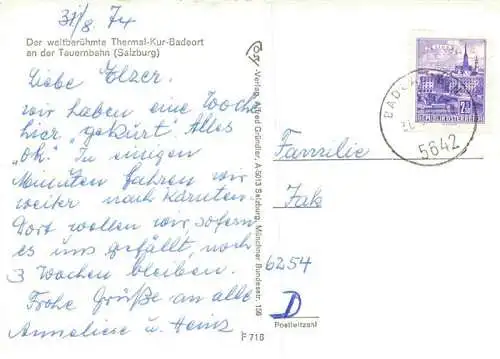 31/8 74
Der weltberühmte Thermal-Kur-Badeort
an der Tauernbahn (Salzburg)
Liebe Elzer.
wir haben eine Woche
hier "gekurt". Alles
"ok." In einigen
Minuten fahren wir
weiter nach Kärnten.
Dort wollen wir sofern
es uns gefällt, noch
3 Wochen bleiben.
Frohe Grüße an alle
Anneliese u. Heinz
-Verlag, Alfred Gründler, A-5013 Salzburg, Münchner Bundesstr. 156
F 716
REPUBLIK ÖSTERREICH
5642
Familie
Jak
6254
D
Postleitzahl